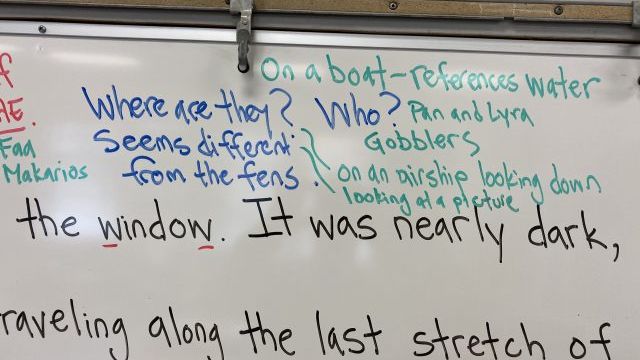 On a boat-references water
Where are they? Who? Pan and Lyra
AE.
Seems different Gobblers
Faa
Makarios from the fens. on an airship looking down
looking at a picture
the window. It was nearly dark,
raveling along the last stretch of